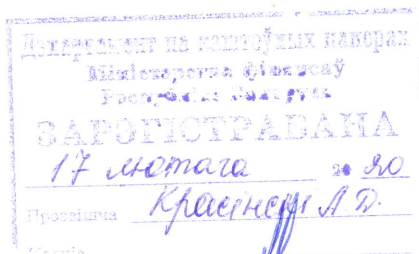 Дэпартамент па каштоўных паперах
Міністэрства фінансаў
Рэспублікі Беларусь
ЗАРЭГІСТРАВАНА
17 лютага 2020
Прозвішча Красінскі А Д.